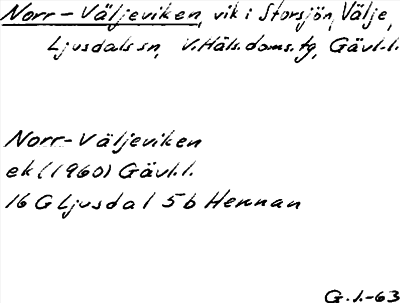 Norr-Väljeviken, vik i Storsjön, Välje,
Ljusdals sn, V. Häls. doms. tg, Gävl.l.
Norr-Väljeviken
ek (1960) Gävl.l.
16 G Ljusdal 5 b Hennan
G.I.-63